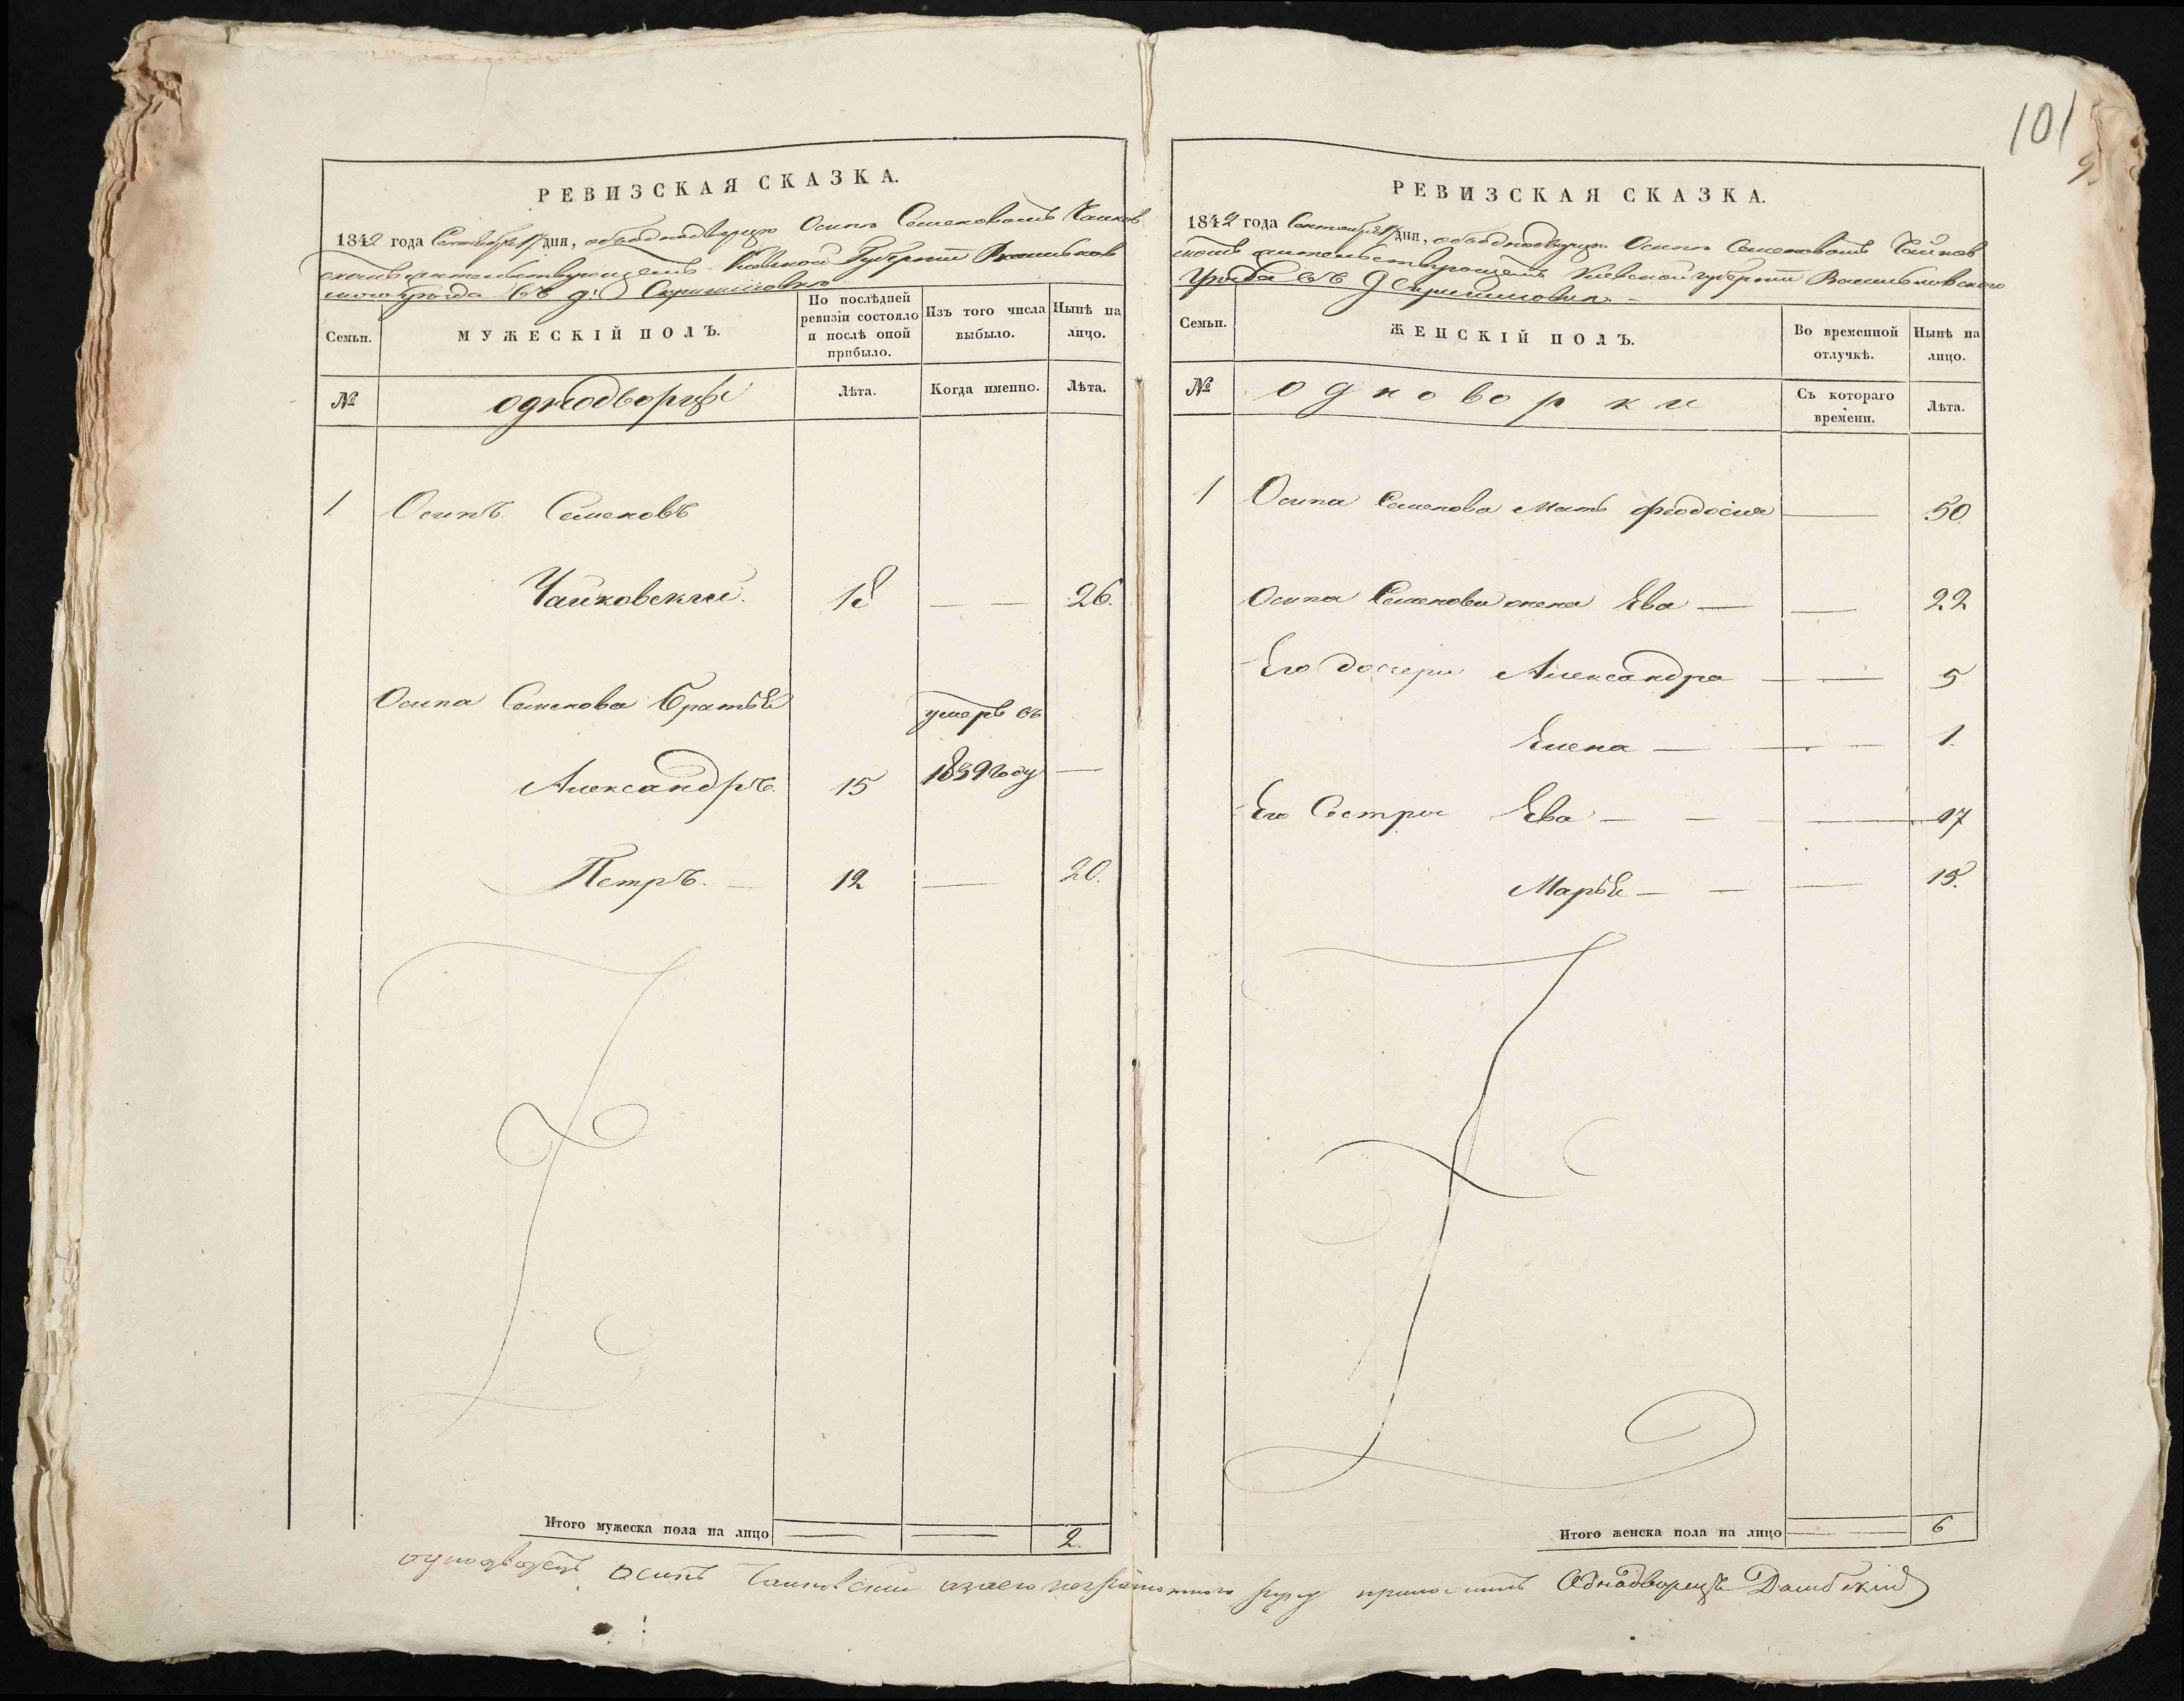 101
РЕВИЗСКАЯ СКАЗКА.
1842 года Сентября 17 дня, объ однодворцѣ Осипѣ Семеновомъ Чайков
скомъ жительствующемъ Киевской Губернiи Васильков
скаго уезда въ д:
Семьи.
МУЖЕСКІЙ ПОЛЪ.
По послѣдней ревизіи состояло и послѣ оной прибыло.
Изъ того числа выбыло.
Нынѣ на лицо.
№
однодворцы
Лѣта.
Когда именно.
Лѣта.
1. Осипъ Семеновъ
Чайковскии. 18 — — 26.
Осипа Семенова Братья умеръ въ
Александръ. 15 1839 году —
Петръ. — 12 — 20.
Итого мужеска пола на лицо — — 2.
РЕВИЗСКАЯ СКАЗКА.
1842 года Сентября 17 дня, объ однодворцѣ Осипѣ Семеновомъ Чайков
скомъ жительствующемъ Киевской губернiи Васильковского
Уезда въ д
Семьи.
ЖЕНСКІЙ ПОЛЪ.
Во временной отлучкѣ.
Нынѣ на лицо.
№
одноворки
Съ котораго времени.
Лѣта.
1 Осипа Семенова Мать феодосия — 50
Осипа Семенова жена Ева — — 22
Его дочери Александра — — 5
Елена — — — 1.
Его Сестры Ева — — — 17
Марья — — — 15.
Итого женска пола на лицо — 6
однодворецъ Осипъ Чайковский а за его неграмотного руку приложилъ Однодворецъ